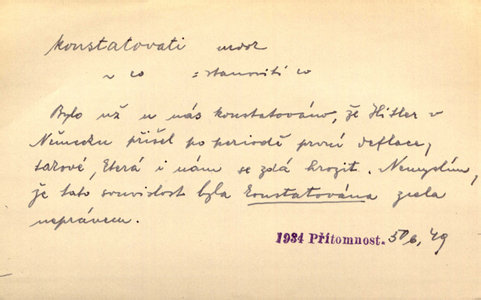 konstatovati nedok
~ co = stanoviti co
Bylo už u nás konstatováno, že Hitler v
Německu přišel po periodě první deflace,
takové, která i nám se zdá hrozit. Nemyslím,
že tato souvislost byla konstatována zcela
neprávem.
1934 Přítomnost. 49